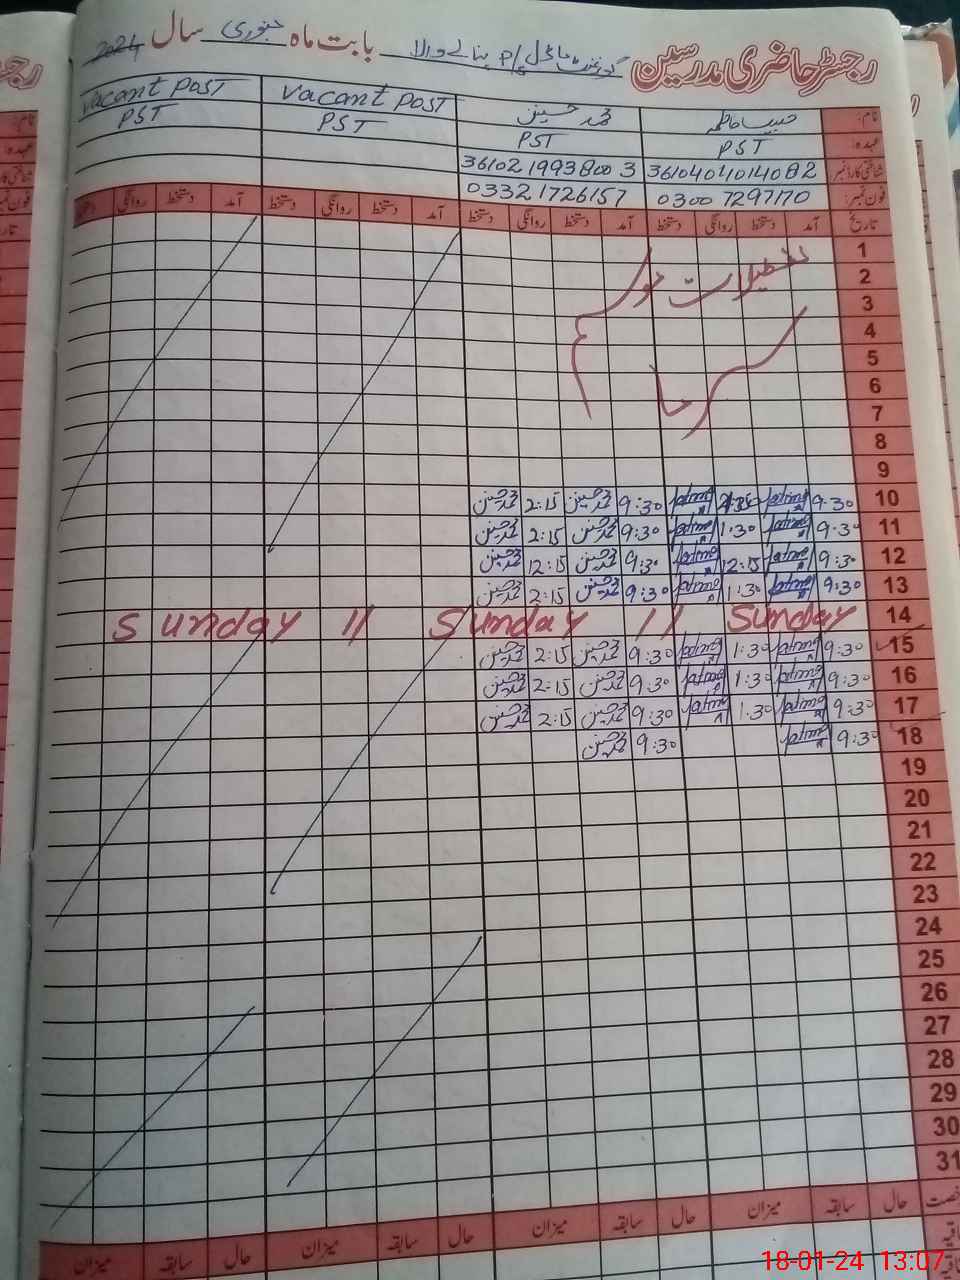 رجسٹر حاضری مدرسین گورنمنٹ ماڈل P/S بنالے والا بابت ماہ جنوری سال 2024
نام: حبیبہ فاطمہ محمد حسین Vacant Post Vacant Post
عہدہ: PST PST PST PST
شناختی کارڈ نمبر 3610404014082 3610219938003
فون نمبر: 0300 7297170 0332 1726157
تاریخ آمد دستخط روانگی دستخط آمد دستخط روانگی دستخط آمد دستخط روانگی دستخط آمد دستخط روانگی دستخط
1
2
3
4
5
6
7
8
9
تعطیلات موسم
سرما
10 9.30 9:30 محمد حسین 2:15 محمد حسین
11 9.30 1:30 9:30 محمد حسین 2:15 محمد حسین
12 9:30 12:15 9:30 محمد حسین 12:15 محمد حسین
13 9:30 1:30 9:30 محمد حسین 2:15 محمد حسین
14 Sunday // Sunday // Sunday
15 9:30 1:30 9:30 محمد حسین 2:15 محمد حسین
16 9:30 1:30 9:30 محمد حسین 2:15 محمد حسین
17 9:30 1:30 9:30 محمد حسین 2:15 محمد حسین
18 9:30 9:30 محمد حسین
19
20
21
22
23
24
25
26
27
28
29
30
31
حال سابقہ میزان حال سابقہ میزان حال سابقہ میزان حال سابقہ میزان
18-01-24 13:07